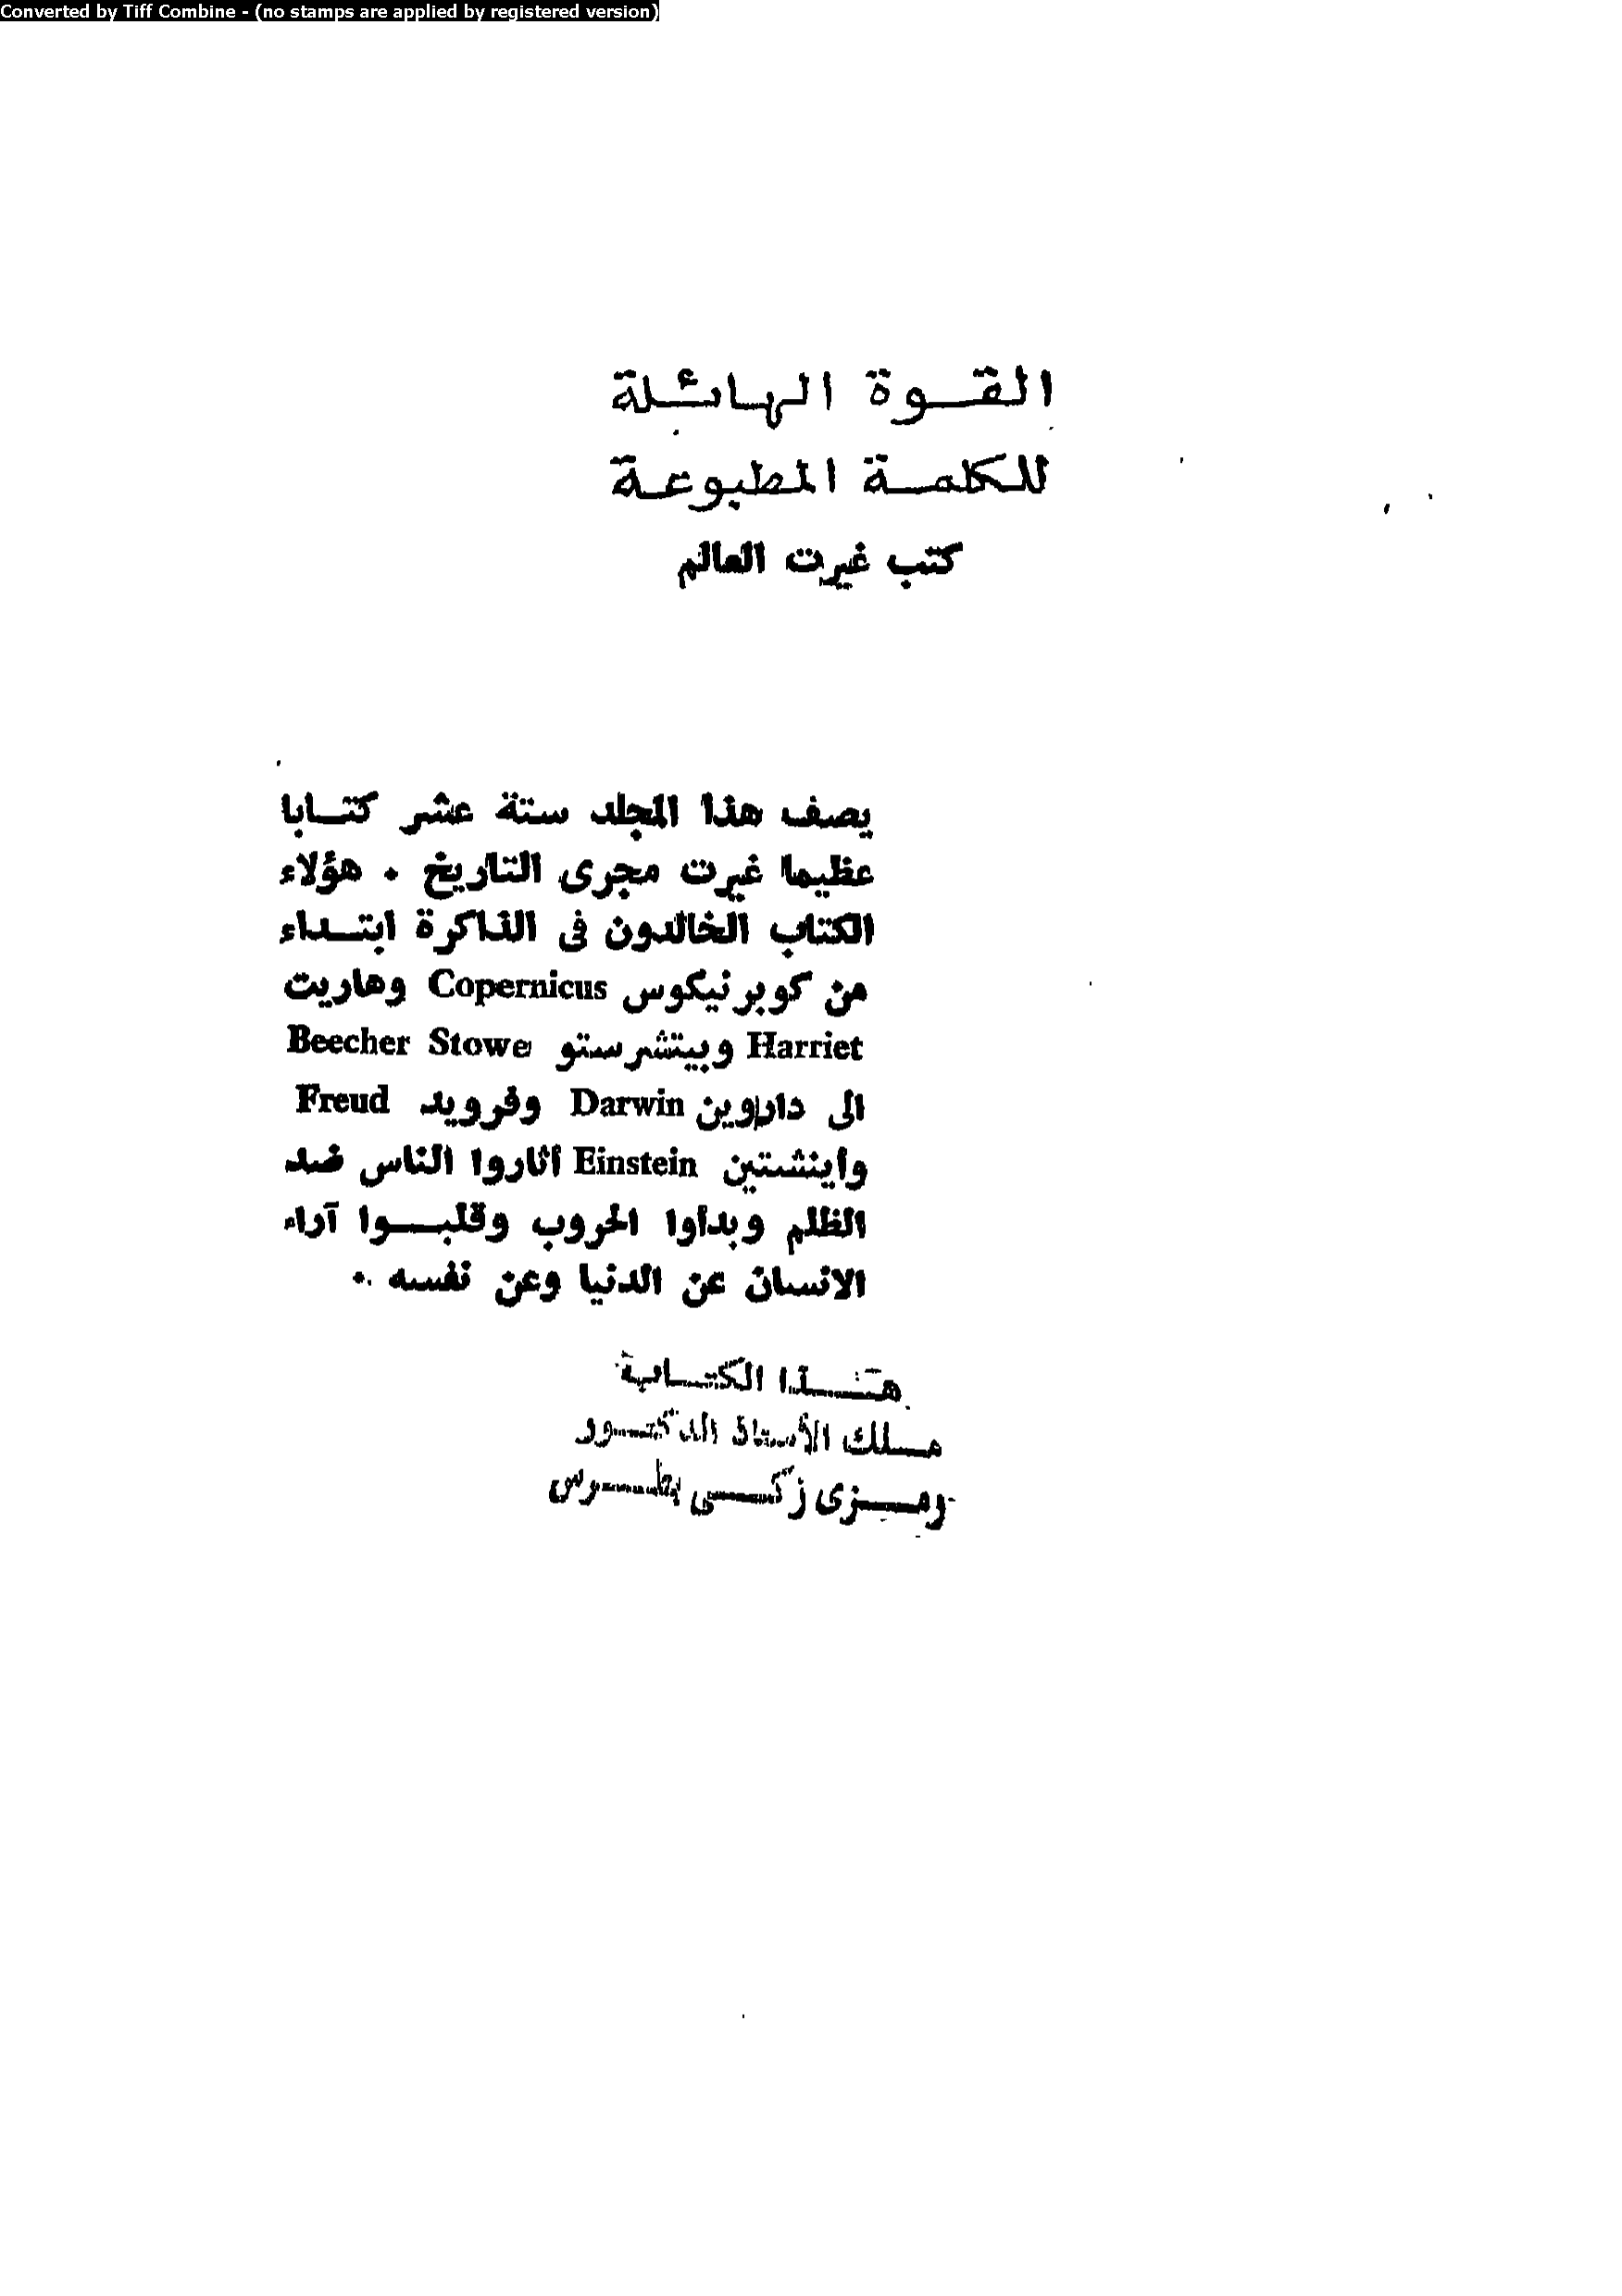 Converted by Tiff Combine - (no stamps are applied by registered version)
القوة الهائلة
للكلمة المطبوعة
كتب غيرت العالم
يصف هذا المجلد ستة عشر كتابا
عظيما غيرت مجرى التاريخ . هؤلاء
الكتاب الخالدون فى الذاكرة ابتداء
من كوبرنيكوس Copernicus وهاريت
Harriet وبيتشرستو Beecher Stowe
الى داروين Darwin وفرويد Freud
وأينشتين Einstein أثاروا الناس ضد
الظلم وبدأوا الحروب وقلبوا آراء
الانسان عن الدنيا وعن نفسه .
هذا الكتاب
ملك الأستاذ الدكتور
رمزى زكى بطرس